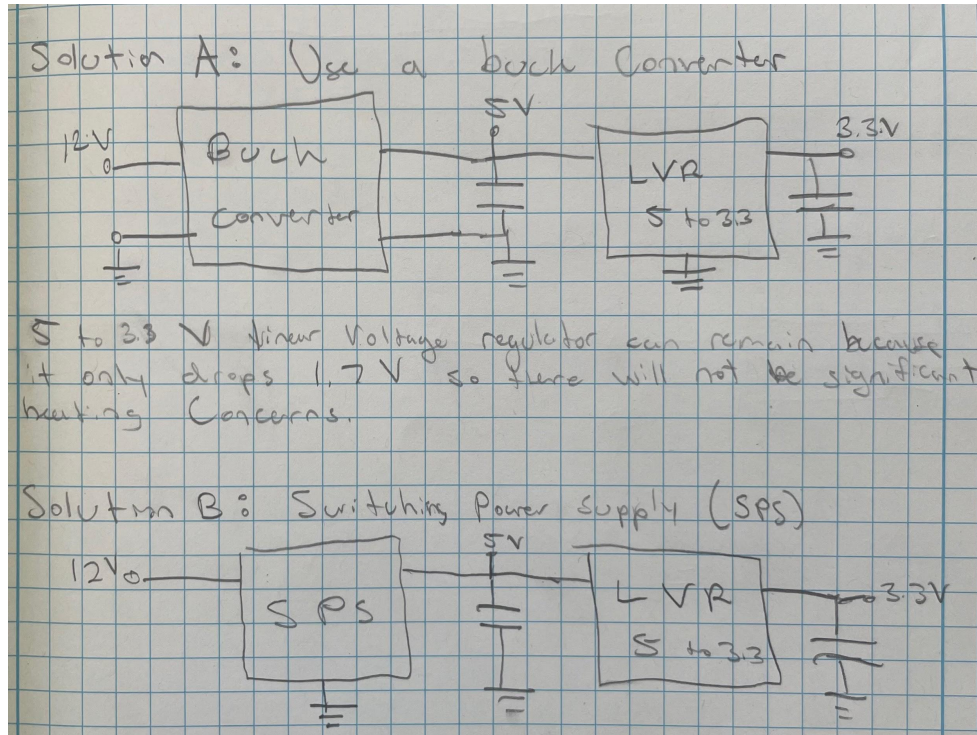 Solution A: Use a buck Converter
5V
12V
3.3V
Buck
converter
LVR
5 to 3.3
5 to 3.3 V linear Voltage regulator can remain because
it only drops 1.7 V so there will not be significant
heating Concerns.
Solution B: Switching Power Supply (SPS)
5V
12V
3.3V
SPS
LVR
5 to 3.3